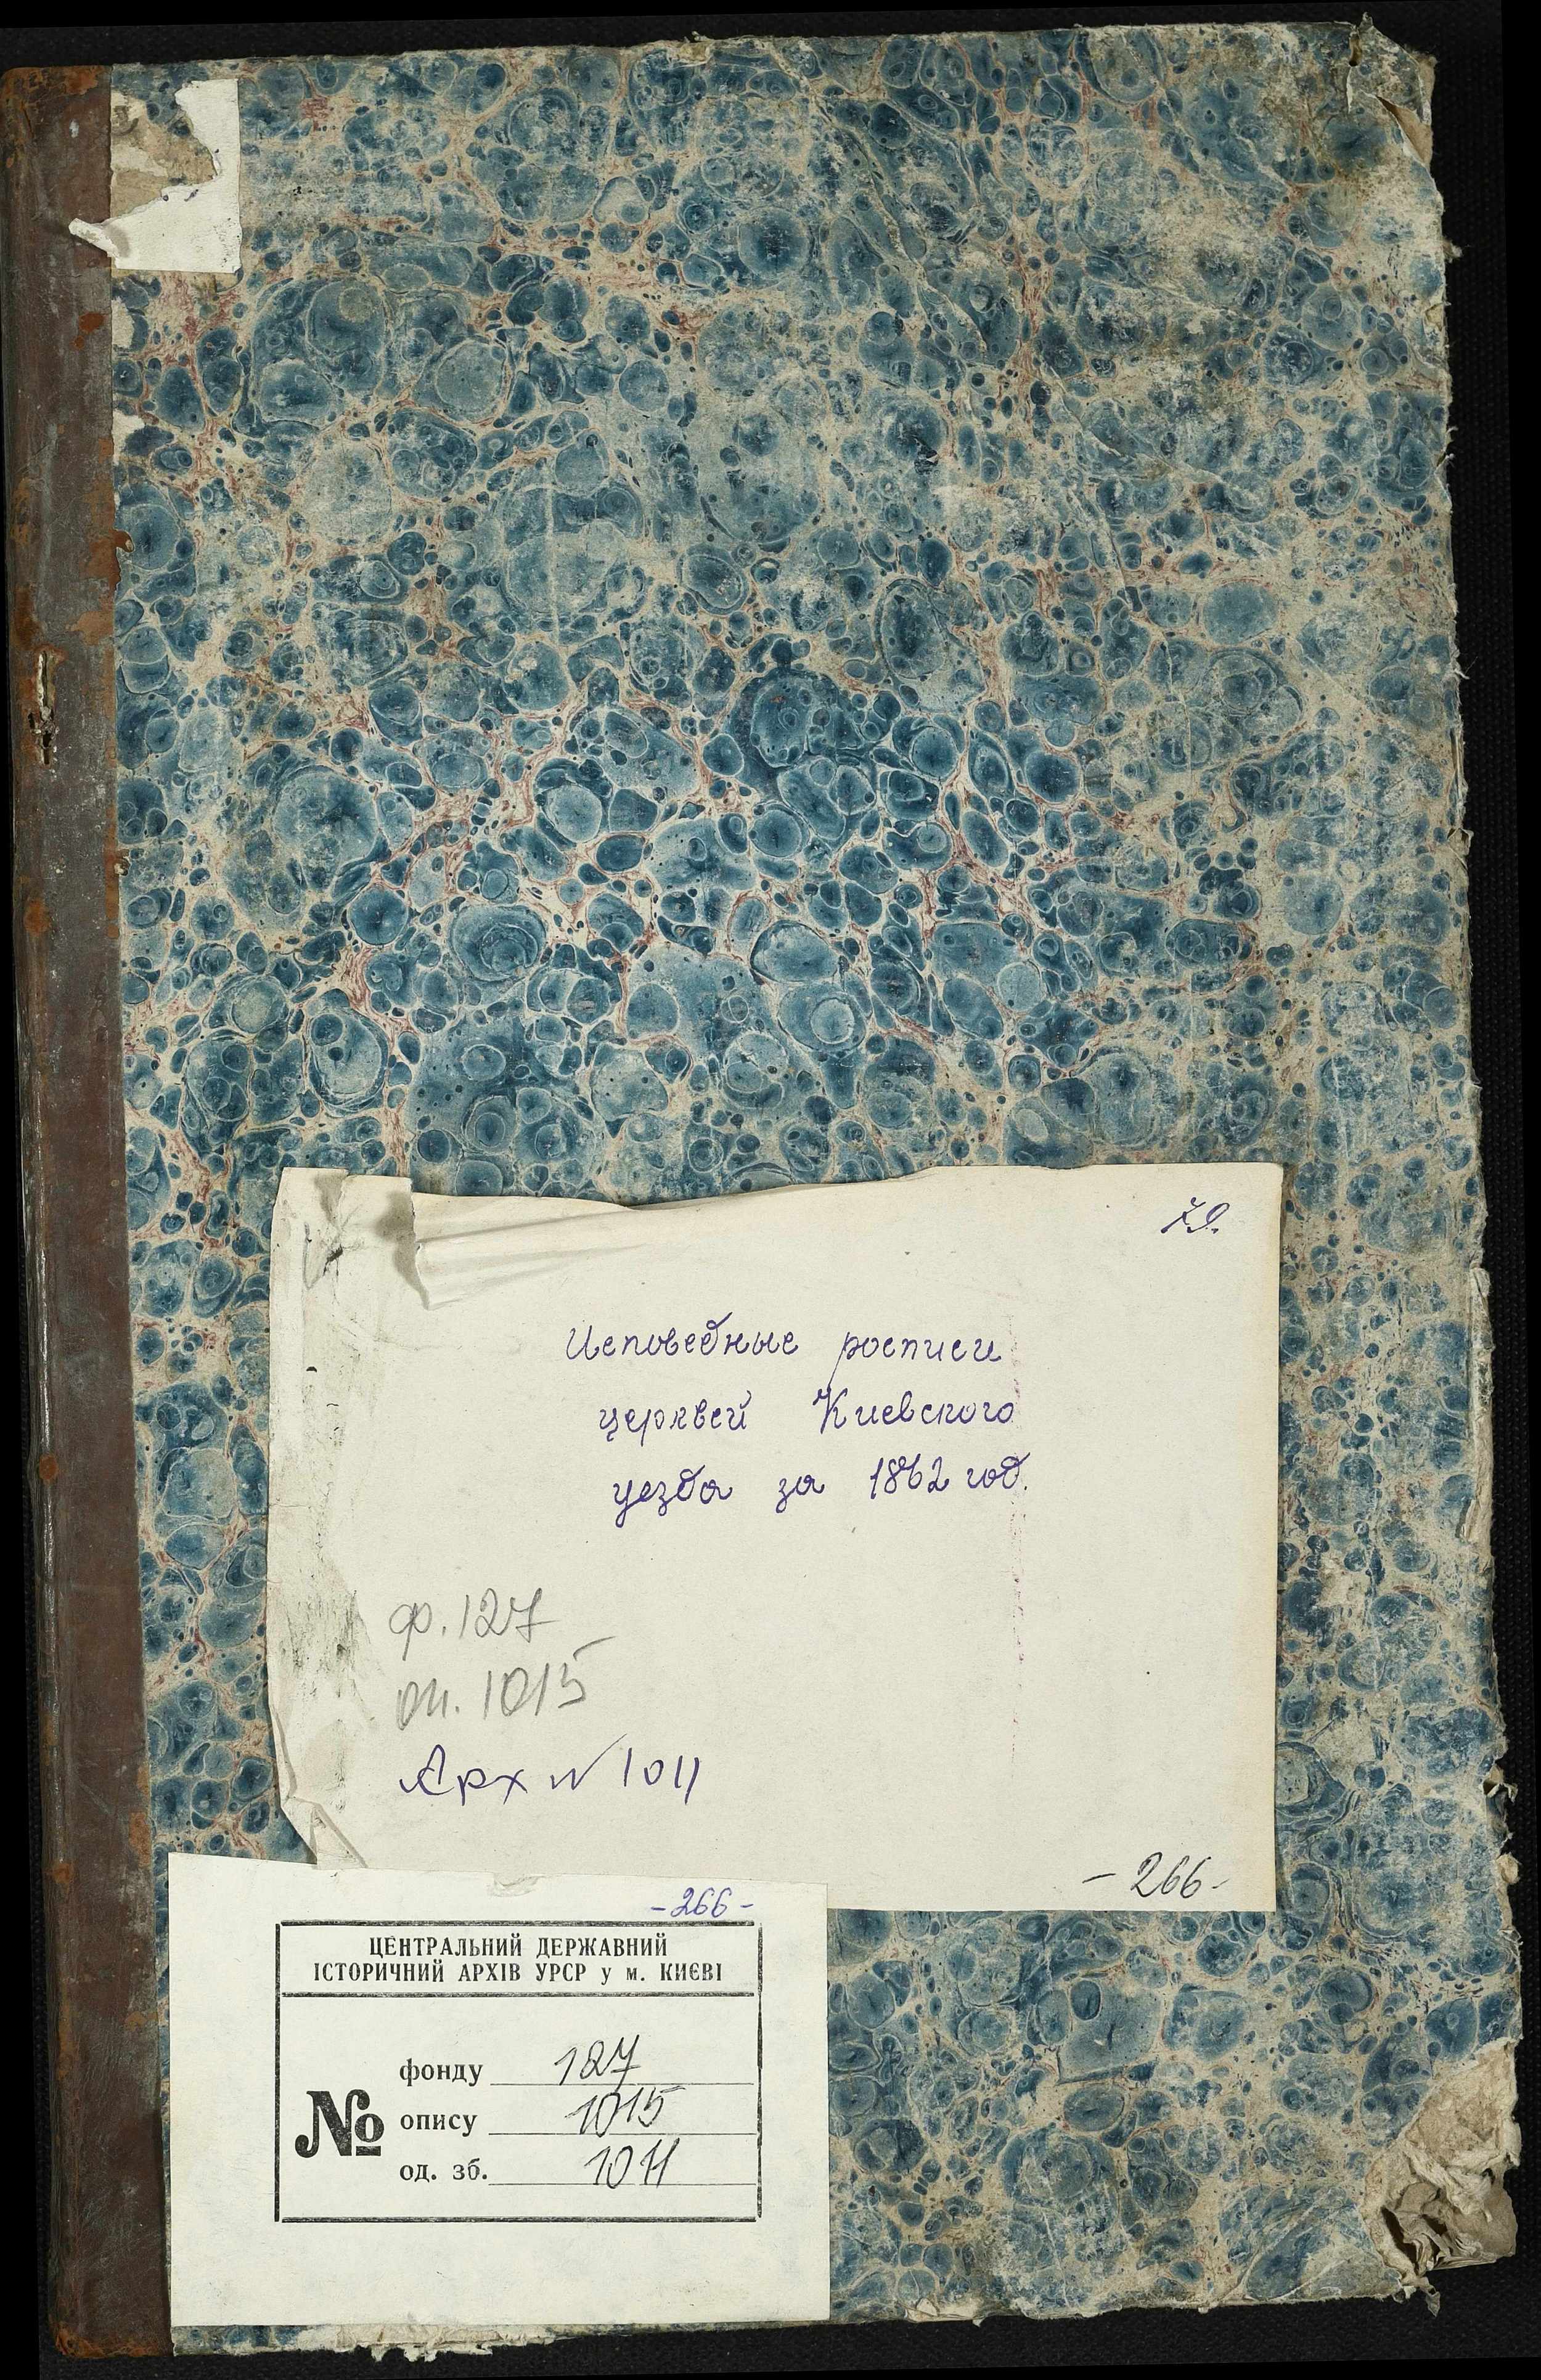 79.
Исповедные росписи
церквей Киевского
уезда за 1862 год.
ф. 127
оп. 1015
Арх № 1011
- 266 -
- 266 -
ЦЕНТРАЛЬНИЙ ДЕРЖАВНИЙ
ІСТОРИЧНИЙ АРХІВ УРСР у м. КИЄВІ
№
фонду 127
опису 1015
од. зб. 1011